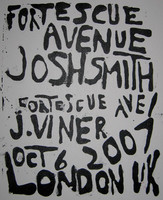 FORTESCUE
AVENUE
JOSH SMITH
FORTESCUE AVE/
J.VINER
OCT 6 2007
LONDON UK